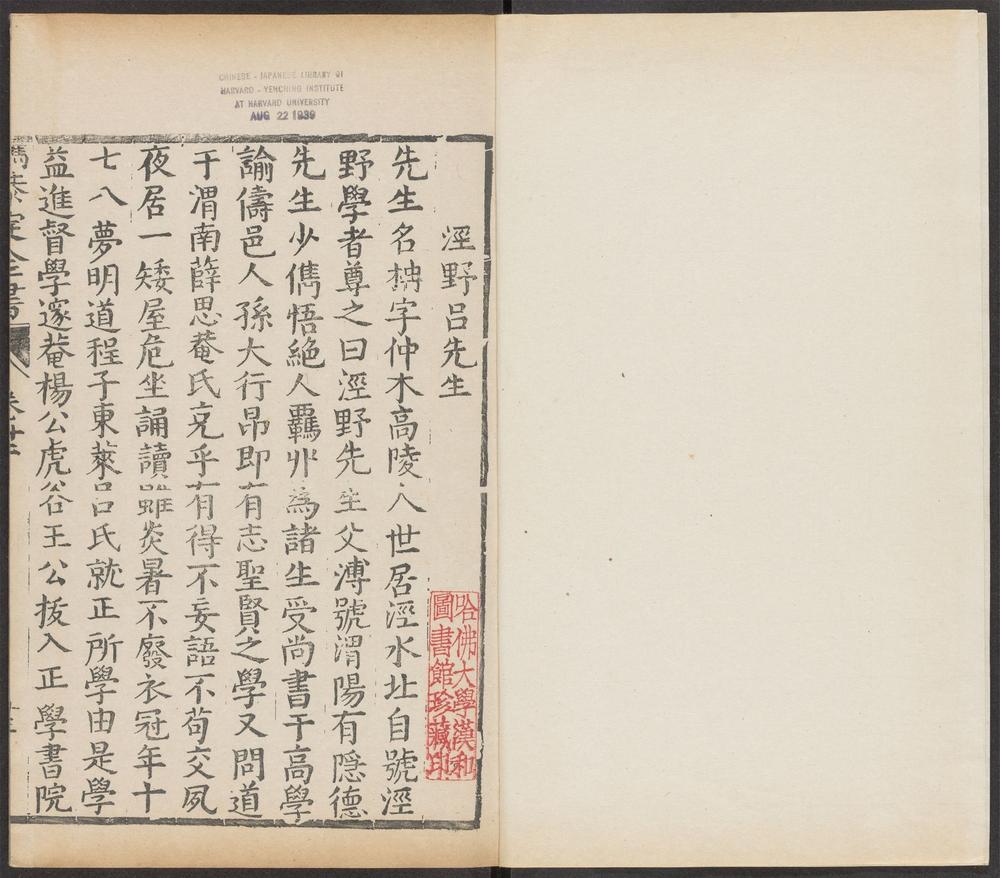 CHINESE - JAPANESE LIBRARY OF
HARVARD - YENCHING INSTITUTE
AT HARVARD UNIVERSITY
AUG 22 1939
涇野呂先生
先生名柟字仲木高陵人世居涇水北自號涇
野學者尊之曰涇野先生父溥號渭陽有隱德
先生少儁悟絶人羈丱為諸生受尚書于高學
諭儔邑人孫大行昂即有志聖賢之學又問道
于渭南薛思菴氏充乎有得不妄語不苟交夙
夜居一矮屋危坐誦讀雖炎暑不廢衣冠年十
七八夢明道程子東萊呂氏就正所學由是學
益進督學邃菴楊公虎谷王公拔入正學書院
哈佛大學漢和
圖書館珍藏印